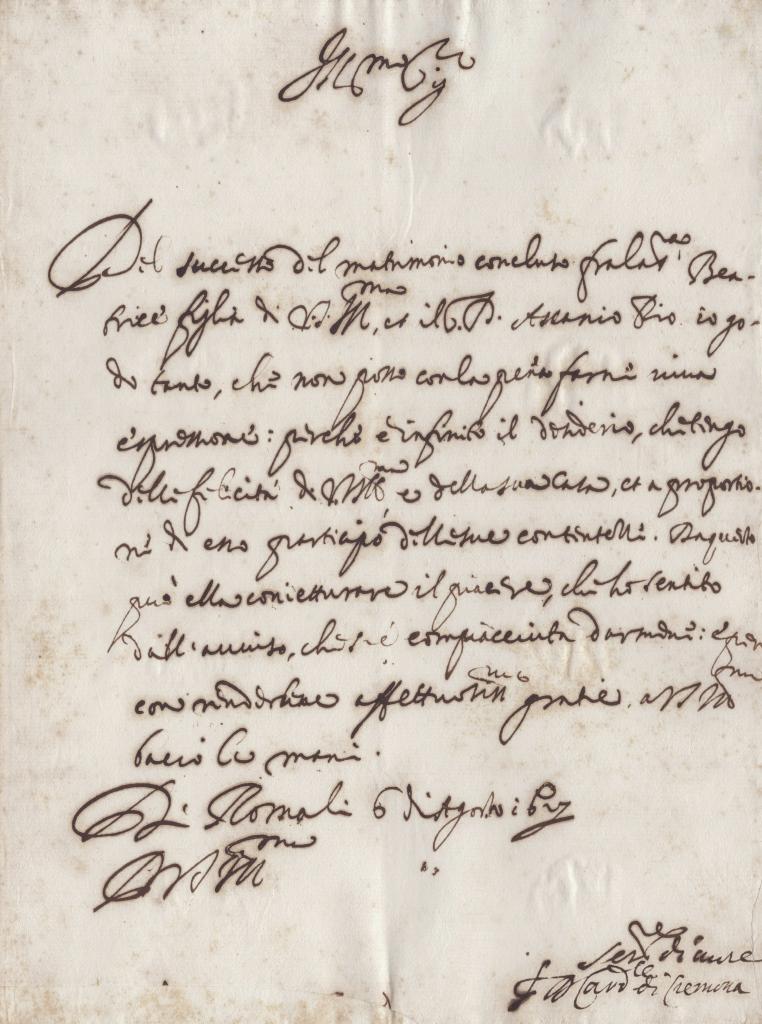 Ill.mo Sig.re
Del successo del matrimonio concluso fra la S.ra Bea-
trice figlia di V.S. Ill.ma, et il S. D. Ascanio Pio io go-
do tanto, che non posso con la penna farne viva
espressione: perche è infinito il desiderio, che tengo
delle felicità di V.S. Ill.ma e della sua Casa, et a proportio-
ne di esso participo delle sue contentezze. Da questo
può ella conietturare il piacere, che ho sentito
dall'avviso, che s'è compiacciuta darmene: e per
con rendergliene affettuosissime gratie. a V.S. Ill.ma
bacio le mani.
Di Roma li 6 di Agosto 1627
D V.S. Ill.ma
Ser.re di cuore
Il Card.le di Cremona